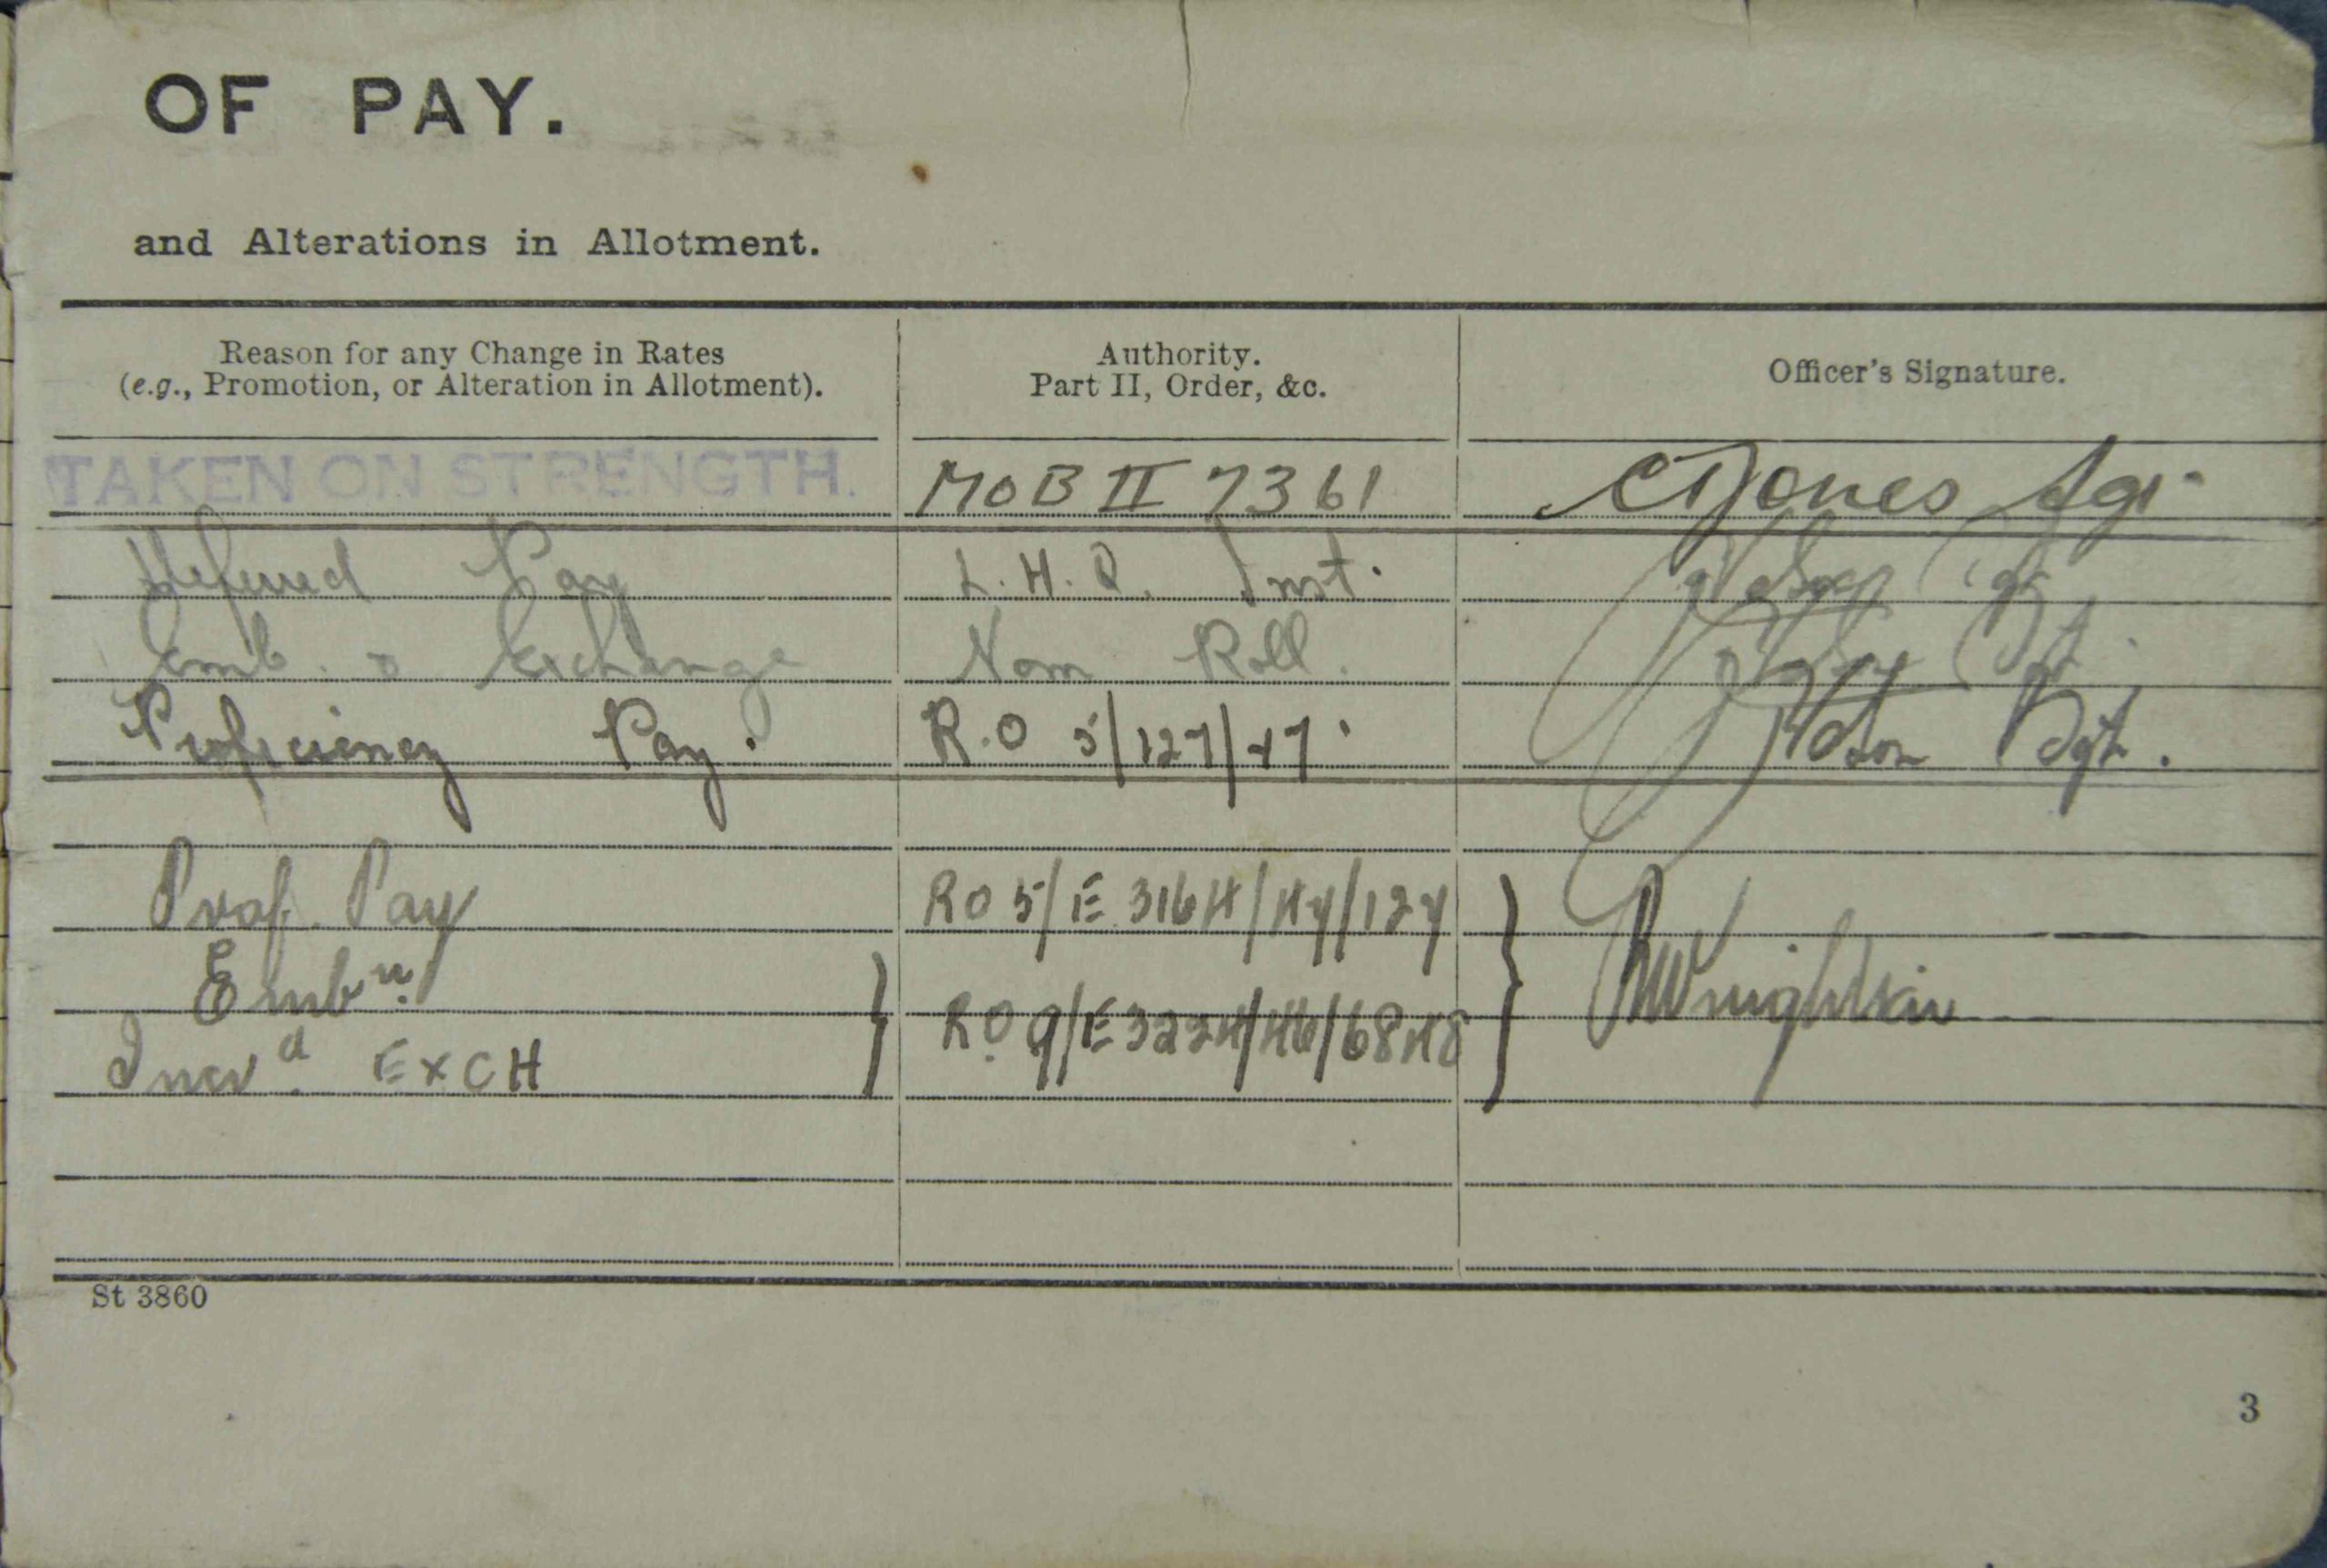 OF PAY.
and Alterations in Allotment.
Reason for any Change in Rates
(e.g., Promotion, or Alteration in Allotment).
Authority.
Part II, Order, &c.
Officer's Signature.
TAKEN ON STRENGTH. MOB II 7361 Jones Sgt.
Deferred Pay L.H.Q. Inst.
Emb. & Exchange Nom Roll.
Proficiency Pay. R.O 5/127/47. Sgt.
Prof. Pay RO 5/E 3164/44/127
Embn.
Incrd. EXCH RO 9/E3224/46/6848
St 3860
3